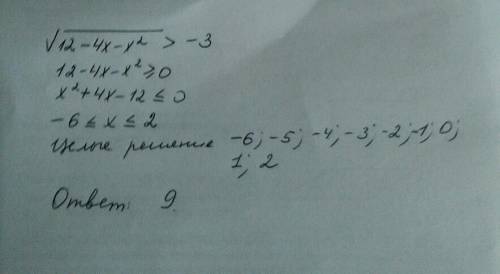 √12-4x-x² > -3
12-4x-x² ≥ 0
x²+4x-12 ≤ 0
-6 ≤ x ≤ 2
Целые решение -6; -5; -4; -3; -2; -1; 0;
1; 2
Ответ: 9.